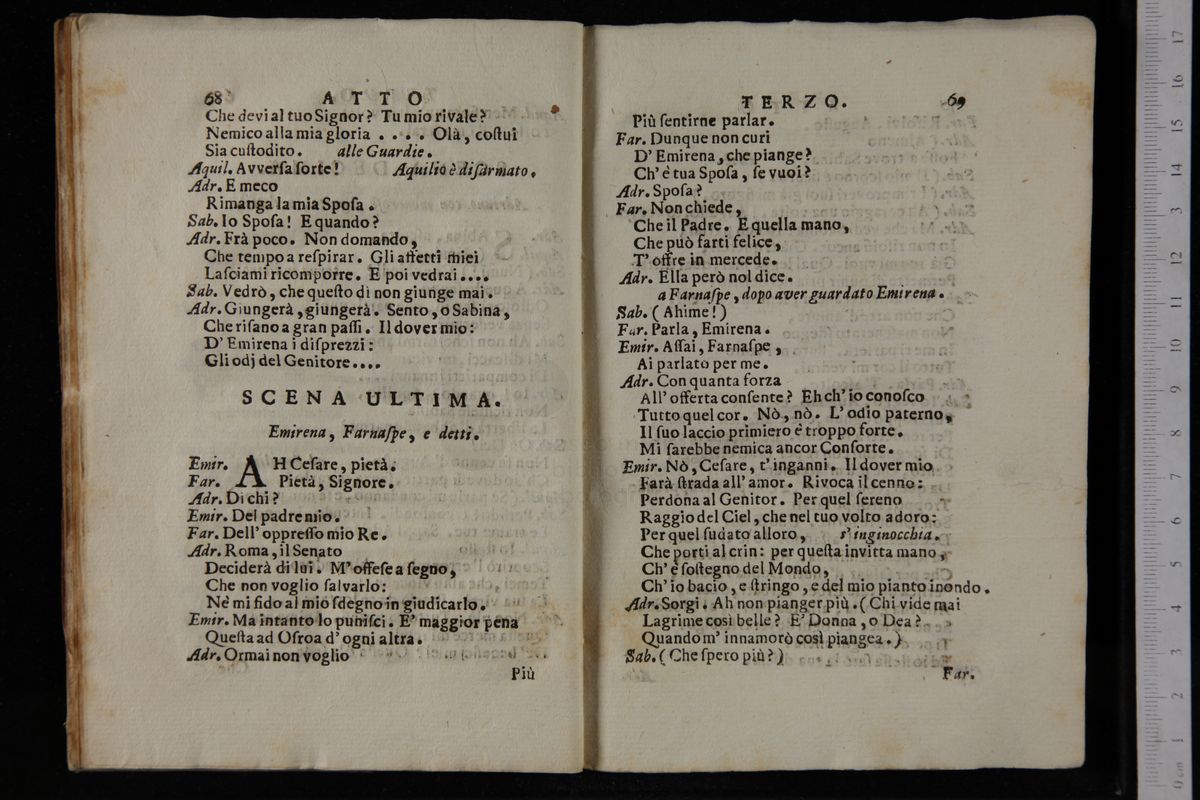 68 ATTO
Che devi al tuo Signor? Tu mio rivale?
Nemico alla mia gloria .... Olà, coſtui
Sia cuſtodito. alle Guardie.
Aquil. Avverſa ſorte! Aquilio è diſarmato.
Adr. E meco
Rimanga la mia Spoſa.
Sab. Io Spoſa! E quando?
Adr. Frà poco. Non domando,
Che tempo a reſpirar. Gli affetti miei
Laſciami ricomporre. E poi vedrai ....
Sab. Vedrò, che queſto dì non giunge mai.
Adr. Giungerà, giungerà. Sento, o Sabina,
Che riſano a gran paſſi. Il dover mio:
D' Emirena i diſprezzi:
Gli odj del Genitore....
SCENA ULTIMA.
Emirena, Farnaſpe, e detti.
Emir. AH Ceſare, pietà.
Far. Pietà, Signore.
Adr. Di chi?
Emir. Del padre mio.
Far. Dell' oppreſſo mio Re.
Adr. Roma, il Senato
Deciderà di lui. M' offeſe a ſegno,
Che non voglio ſalvarlo:
Nè mi fido al mio ſdegno in giudicarlo.
Emir. Ma intanto lo puniſci. E' maggior pena
Queſta ad Oſroa d' ogni altra.
Adr. Ormai non voglio
Più
TERZO. 69
Più ſentirne parlar.
Far. Dunque non curi
D' Emirena, che piange?
Ch' è tua Spoſa, ſe vuoi?
Adr. Spoſa?
Far. Non chiede,
Che il Padre. E quella mano,
Che può farti felice,
T' offre in mercede.
Adr. Ella però nol dice.
a Farnaſpe, dopo aver guardato Emirena.
Sab. (Ahime!)
Far. Parla, Emirena.
Emir. Aſſai, Farnaſpe,
Ai parlato per me.
Adr. Con quanta forza
All' offerta conſente? Eh ch' io conoſco
Tutto quel cor. Nò, nò. L' odio paterno,
Il ſuo laccio primiero è troppo forte.
Mi ſarebbe nemica ancor Conſorte.
Emir. Nò, Ceſare, t' inganni. Il dover mio
Farà ſtrada all' amor. Rivoca il cenno:
Perdona al Genitor. Per quel ſereno
Raggio del Ciel, che nel tuo volto adoro:
Per quel ſudato alloro, s' inginocchia.
Che porti al crin: per queſta invitta mano,
Ch' è ſoſtegno del Mondo,
Ch' io bacio, e ſtringo, e del mio pianto inondo.
Adr. Sorgi. Ah non pianger più. (Chi vide mai
Lagrime così belle? E' Donna, o Dea?
Quando m' innamorò così piangea.)
Sab. (Che ſpero più?)
Far.
17
16
15
14
13
12
11
10
9
8
7
6
5
4
3
2
1
0 cm